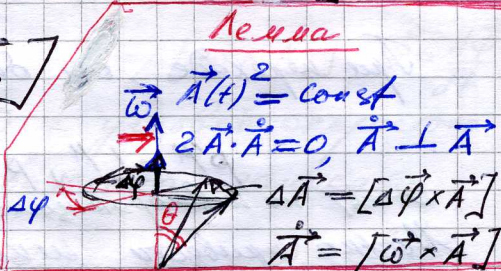 Лемма
ω⃗ A⃗(t)² = const
2A⃗·Ȧ⃗ = 0, Ȧ⃗ ⊥ A⃗
Δφ⃗
Δφ θ ΔA⃗ = [Δφ⃗ × A⃗]
Ȧ⃗ = [ω⃗ × A⃗]